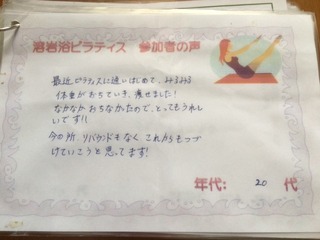 溶岩浴ピラティス 参加者の声
最近ピラティスに通いはじめて、みるみる
体重がおちていき、痩せました!
なかなかおちなかったので、とってもうれし
いです!!
今の所、リバウンドもなくこれからもつづ
けていこうと思ってます!
年代: 20 代